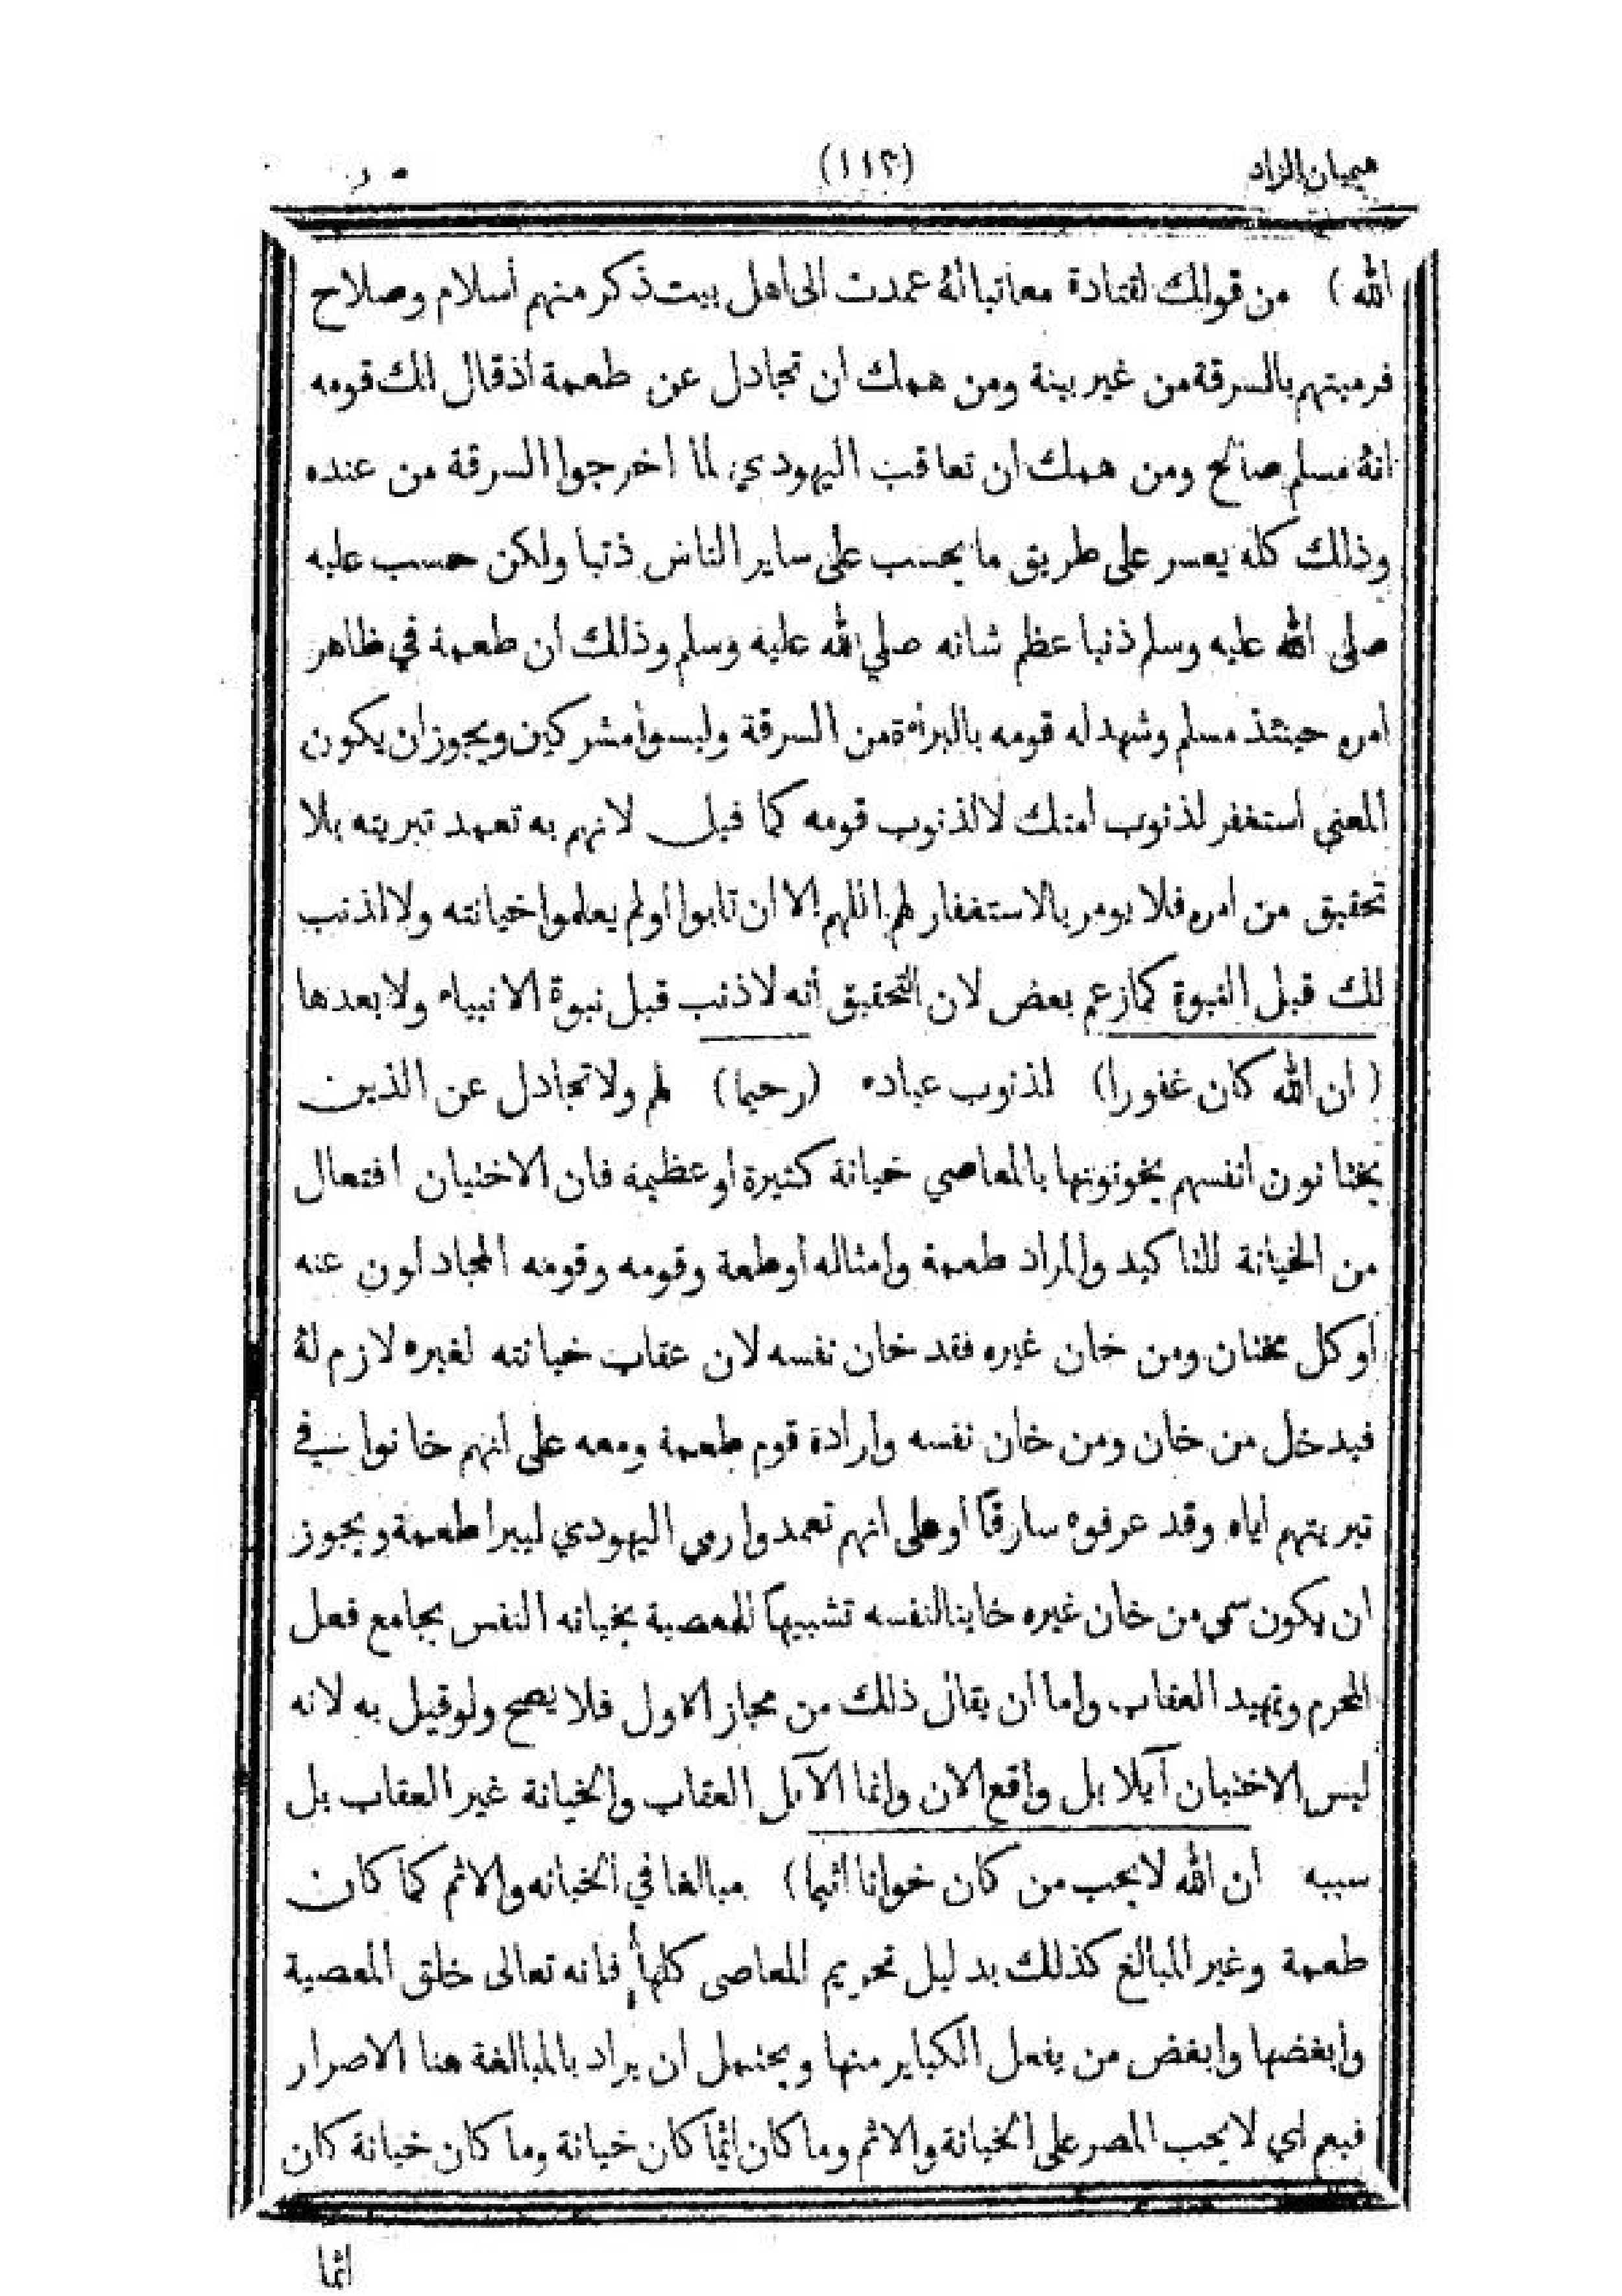 هميان الزاد (١١٢)
الله) من قولك لقتادة معاتبا لهُ عمدت الى اهل بيت ذكر منهم اسلام وصلاح
فرميتهم بالسرقة من غير بينة ومن همك ان تجادل عن طعمة اذ قال لك قومه
انهُ مسلم صالح ومن همك ان تعاقب اليهودي لما اخرجوا السرقة من عنده
وذلك كله يعسر على طريق ما يحسب على ساير الناس ذنبا ولكن حسب عليه
صلى الله عليه وسلم ذنبا عظم شانه صلي الله عليه وسلم وذلك ان طعمة في ظاهر
امره حينئذ مسلم وشهد له قومه بالبراءة من السرقة وليسوا مشركين ويجوز ان يكون
المعنى استغفر لذنوب امتك لا لذنوب قومه كما قيل لانهم به تعمد تبريته بلا
تحقيق من امره فلا يومر بالاستغفار لهم اللهم الا ان تابوا او لم يعلموا خيانته ولا لذنب
لك قبل النبوة كما زعم بعض لان التحقيق انه لا ذنب قبل نبوة الانبياء ولا بعدها
(ان الله كان غفورا) لذنوب عباده (رحيما) لهم ولا تجادل عن الذين
يختانون انفسهم يخونونها بالمعاصي خيانة كثيرة او عظيمة فان الاختيان افتعال
من الخيانة للتاكيد والمراد طعمة وامثاله او طعمة وقومه وقومه المجادلون عنه
او كل مختان ومن خان غيره فقد خان نفسه لان عقاب خيانته لغيره لازم لهُ
فيدخل من خان ومن خان نفسه وارادة قوم طعمة ومعه على انهم خانوا في
تبريتهم اياه وقد عرفوه سارقًا او على انهم تعمدوا رمي اليهودي ليبرا طعمة ويجوز
ان يكون سمى من خان غيره خاينا لنفسه تشبيهًا للمعصية بخيانه النفس بجامع فعل
المحرم وتهيد العقاب واما ان يقال ذلك من مجاز الاول فلا يصح ولو قيل به لانه
ليس الاختيان آيلا بل واقع الان وانما الآيل العقاب والخيانة غير العقاب بل
سببه ان الله لا يحب من كان خوانا اثيما) مبالغا في الخيانه والاثم كما كان
طعمة وغير المبالغ كذلك بدليل تحريم المعاصى كلها فانه تعالى خلق المعصية
وابغضها وابغض من يفعل الكباير منها ويحتمل ان يراد بالمبالغة هنا الاصرار
فيعم اي لا يحب المصر على الخيانة والاثم وما كان اثما كان خيانة وما كان خيانة كان
اثما